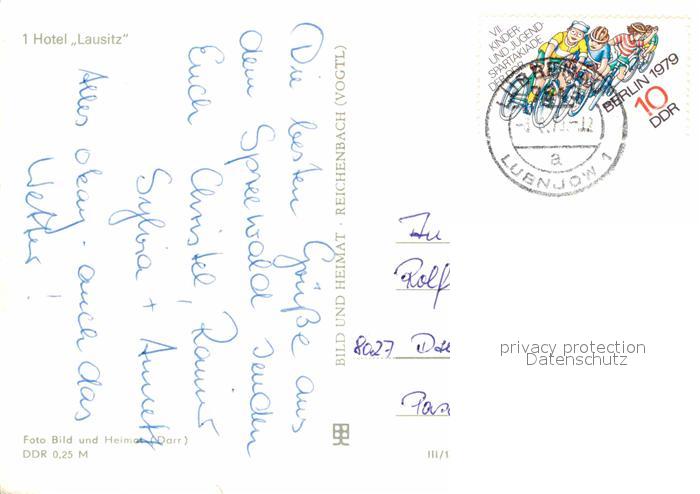 1 Hotel „Lausitz"
Die besten Grüße aus
dem Spreewald senden
Euch Christel, Rainer
Sylvia + Annett
Alles okay - auch das
Wetter!
BILD UND HEIMAT · REICHENBACH (VOGTL)
Foto Bild und Heimat (Darr)
DDR 0,25 M
III/1
VII.
KINDER-
UND JUGEND-
SPARTAKIADE
DER DDR
BERLIN 1979
10
DDR
LUEBBENAU
a
LUBNJOW 1
An
Rolf
8027
privacy protection
Datenschutz